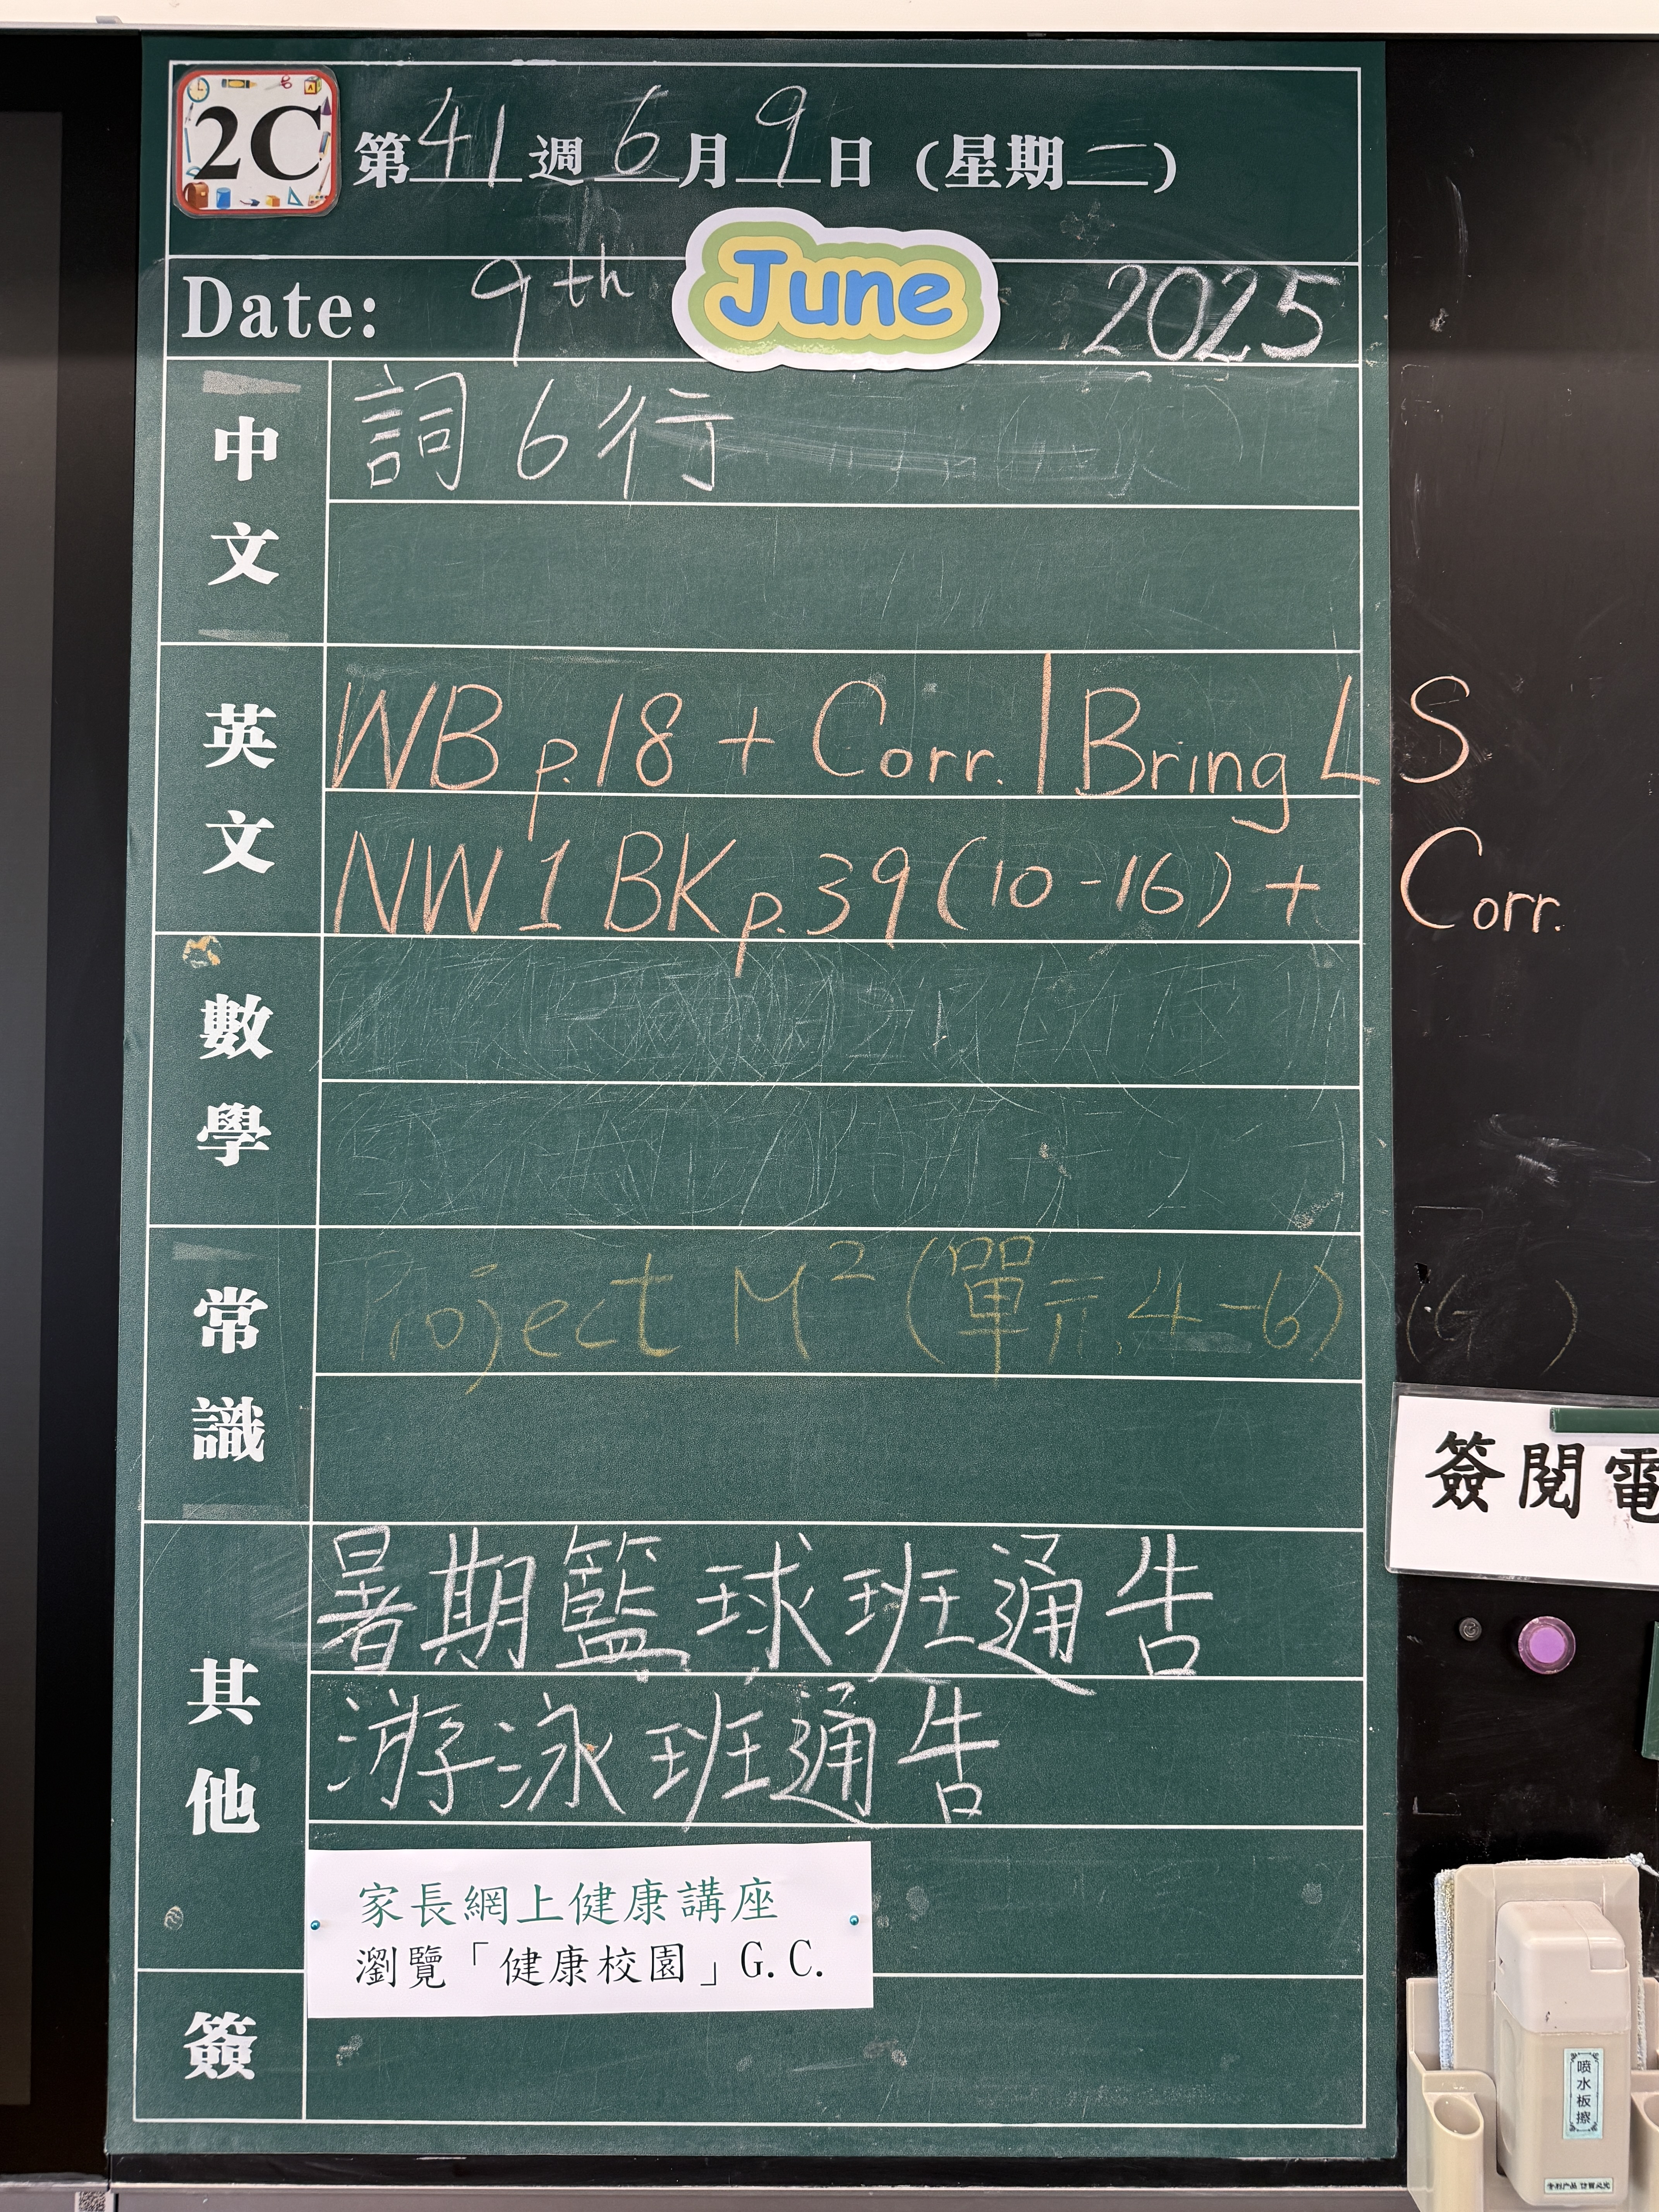 2C 第41週6月9日(星期二)
Date: 9th June 2025
中文
詞6行
英文
WB p.18 + Corr. | Bring LS
NW1 BK p.39 (10-16) + Corr.
數學
常識
Project M² (單元4-6) (G )
簽閱電
其他
暑期籃球班通告
游泳班通告
家長網上健康講座
瀏覽「健康校園」G.C.
簽
喷水板擦